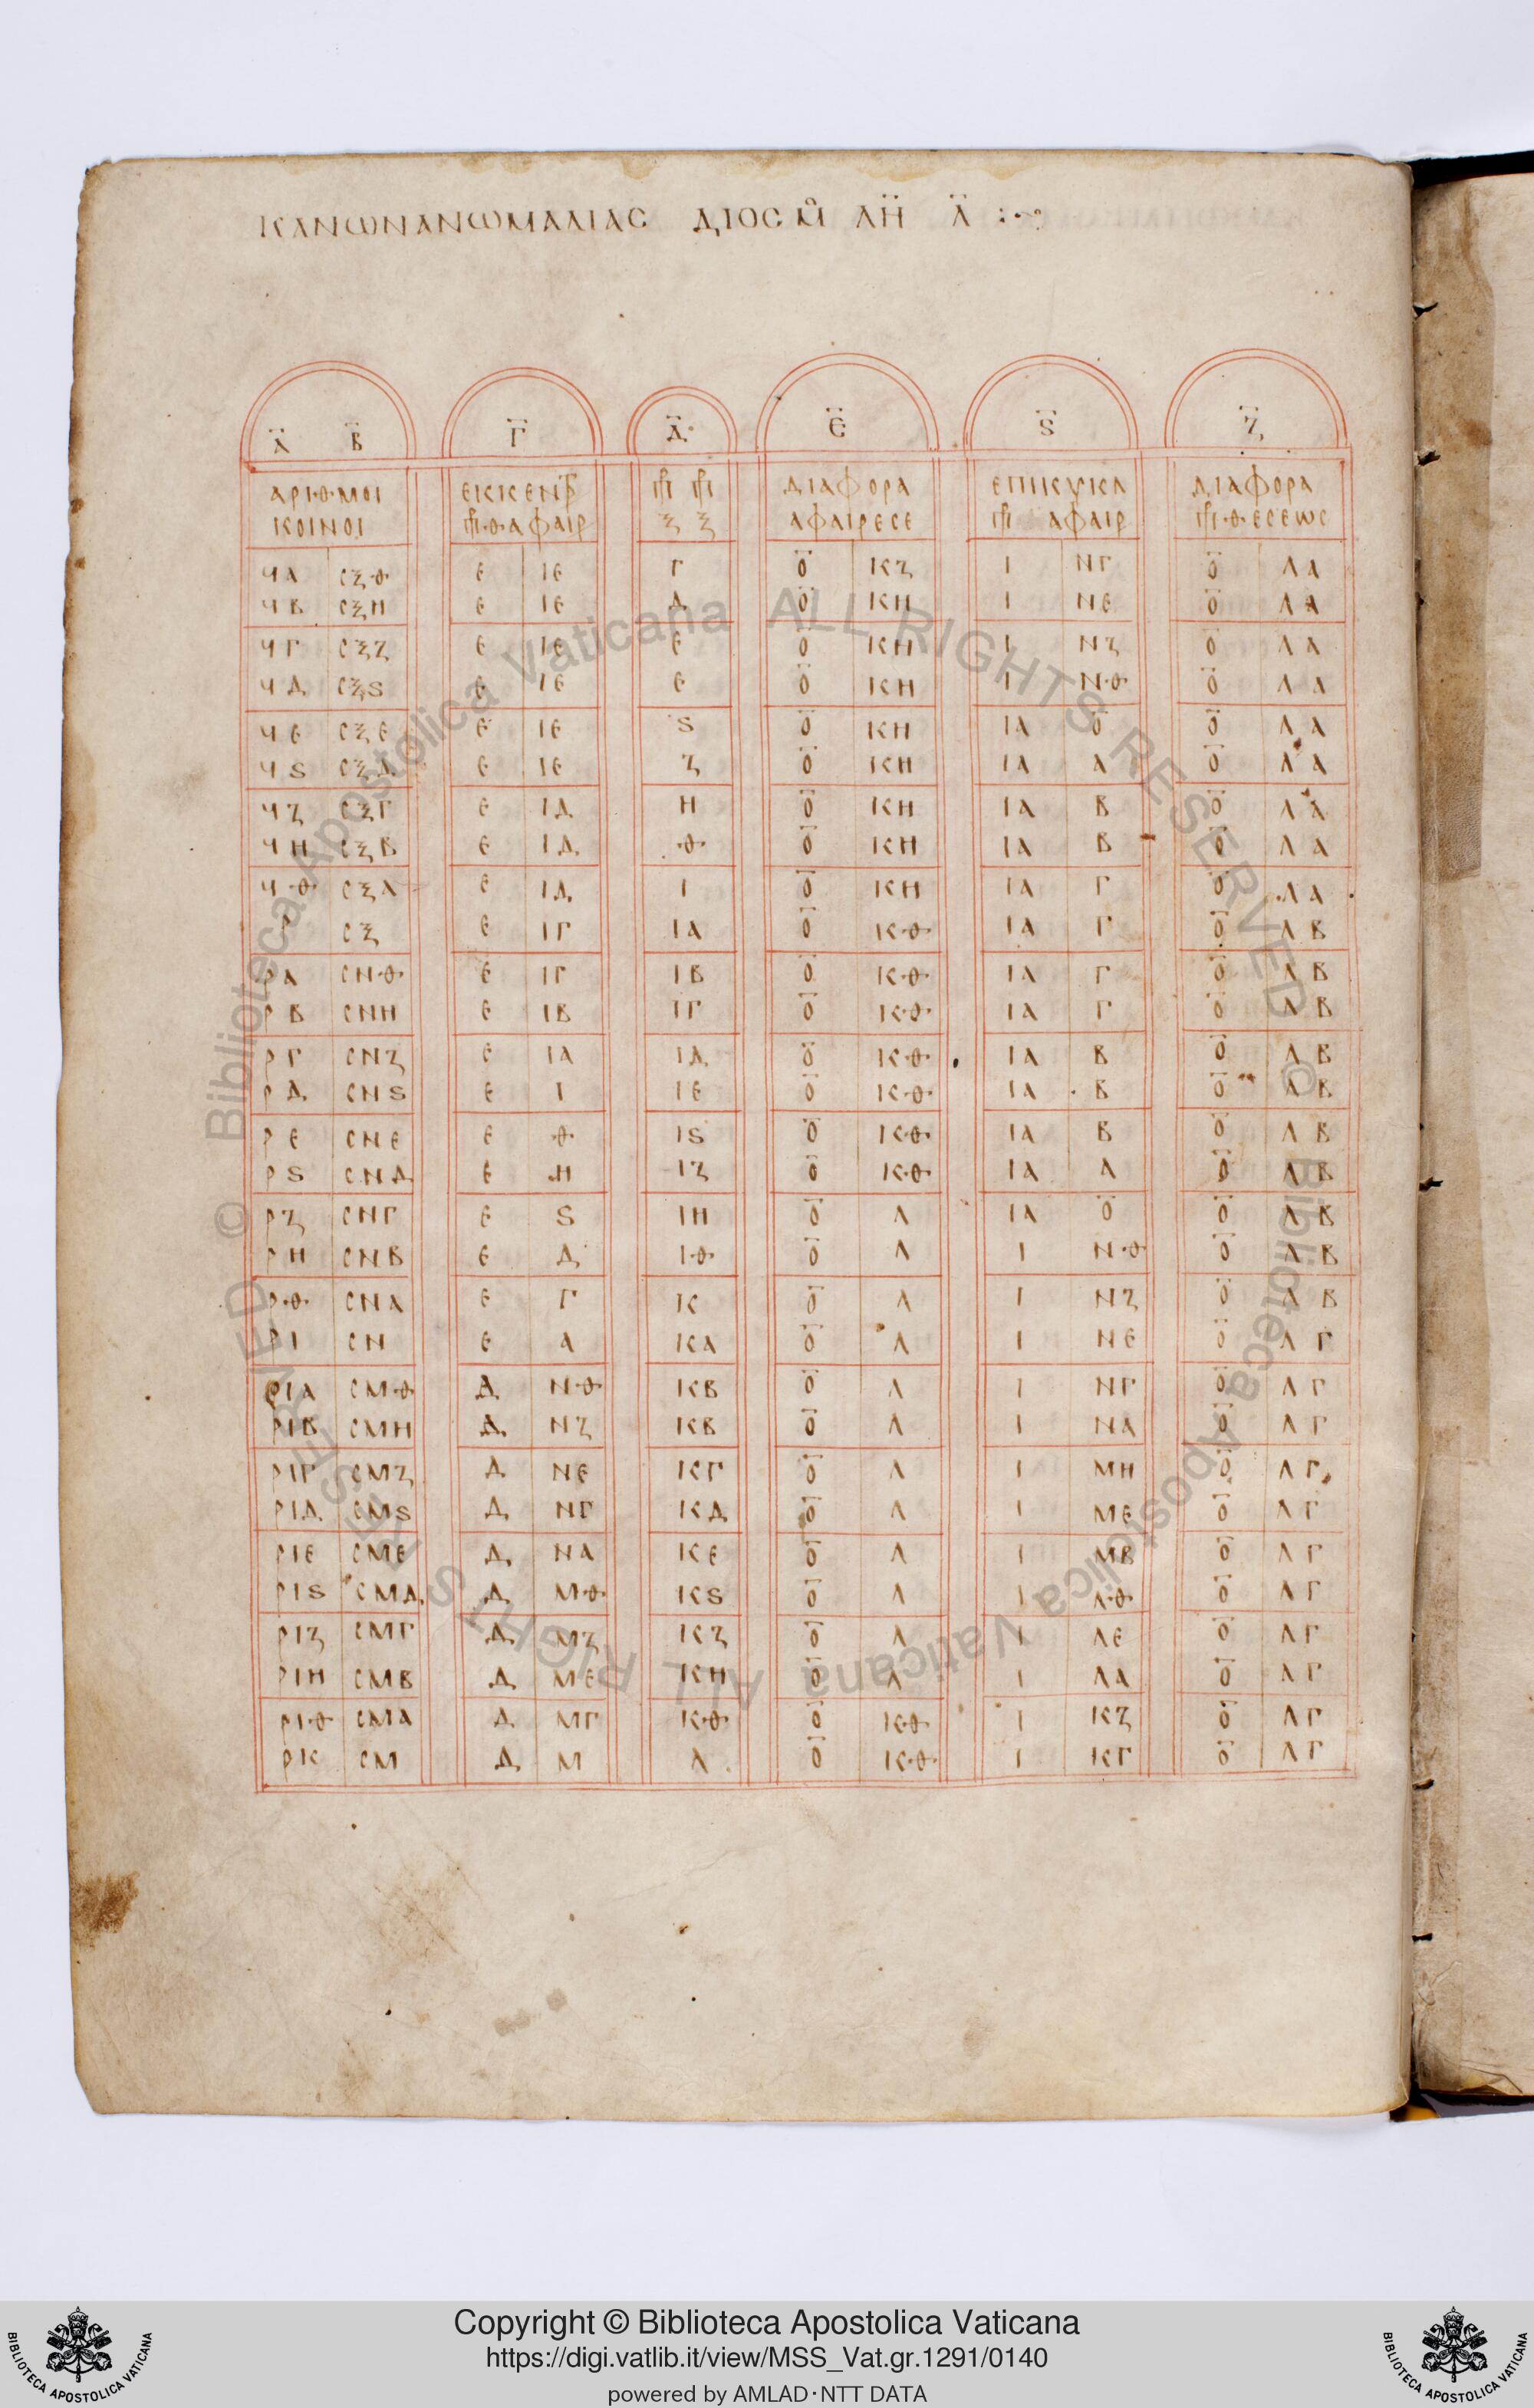 ΚΑΝΩΝ ΑΝΩΜΑΛΙΑΣ ΔΙΟΣ
Α Β Γ Δ Ε Ϛ Ζ
ΑΡΙΘΜΟΙ ΕΚΚΕΝΤΡ ΔΙΑΦΟΡΑ ΕΠΙΚΥΚΛ ΔΙΑΦΟΡΑ
ΚΟΙΝΟΙ ΑΦΑΙΡ Ξ Ξ ΑΦΑΙΡΕСΕ ΑΦΑΙΡ ΘΕСΕωС
ϤΑ СΞΘ Ε ΙΕ Γ Ο ΚΖ Ι ΝΓ Ο ΛΑ
ϤΒ СΞΗ Ε ΙΕ Δ Ο ΚΗ Ι ΝΕ Ο ΛΑ
ϤΓ СΞΖ Ε ΙΕ Ε Ο ΚΗ Ι ΝΖ Ο ΛΑ
ϤΔ СΞϚ Ε ΙΕ Ε Ο ΚΗ Ι ΝΘ Ο ΛΑ
ϤΕ СΞΕ Ε ΙΕ Ϛ Ο ΚΗ ΙΑ Ο Ο ΛΑ
ϤϚ СΞΔ Ε ΙΕ Ζ Ο ΚΗ ΙΑ Α Ο ΛΑ
ϤΖ СΞΓ Ε ΙΔ Η Ο ΚΗ ΙΑ Β Ο ΛΑ
ϤΗ СΞΒ Ε ΙΔ Θ Ο ΚΗ ΙΑ Β Ο ΛΑ
ϤΘ СΞΑ Ε ΙΔ Ι Ο ΚΗ ΙΑ Γ Ο ΛΑ
Ρ СΞ Ε ΙΓ ΙΑ Ο ΚΘ ΙΑ Γ Ο ΛΒ
ΡΑ СΝΘ Ε ΙΓ ΙΒ Ο ΚΘ ΙΑ Γ Ο ΛΒ
ΡΒ СΝΗ Ε ΙΒ ΙΓ Ο ΚΘ ΙΑ Γ Ο ΛΒ
ΡΓ СΝΖ Ε ΙΑ ΙΔ Ο ΚΘ ΙΑ Β Ο ΛΒ
ΡΔ СΝϚ Ε Ι ΙΕ Ο ΚΘ ΙΑ Β Ο ΛΒ
ΡΕ СΝΕ Ε Θ ΙϚ Ο ΚΘ ΙΑ Β Ο ΛΒ
ΡϚ СΝΔ Ε Η ΙΖ Ο ΚΘ ΙΑ Α Ο ΛΒ
ΡΖ СΝΓ Ε Ϛ ΙΗ Ο Λ ΙΑ Ο Ο ΛΒ
ΡΗ СΝΒ Ε Δ ΙΘ Ο Λ Ι ΝΘ Ο ΛΒ
ΡΘ СΝΑ Ε Γ Κ Ο Λ Ι ΝΖ Ο ΛΒ
ΡΙ СΝ Ε Α ΚΑ Ο Λ Ι ΝΕ Ο ΛΓ
ΡΙΑ СΜΘ Δ ΝΘ ΚΒ Ο Λ Ι ΝΓ Ο ΛΓ
ΡΙΒ СΜΗ Δ ΝΖ ΚΒ Ο Λ Ι ΝΑ Ο ΛΓ
ΡΙΓ СΜΖ Δ ΝΕ ΚΓ Ο Λ Ι ΜΗ Ο ΛΓ
ΡΙΔ СΜϚ Δ ΝΓ ΚΔ Ο Λ Ι ΜΕ Ο ΛΓ
ΡΙΕ СΜΕ Δ ΝΑ ΚΕ Ο Λ Ι ΜΒ Ο ΛΓ
ΡΙϚ СΜΔ Δ ΜΘ ΚϚ Ο Λ Ι ΛΘ Ο ΛΓ
ΡΙΖ СΜΓ Δ ΜΖ ΚΖ Ο Λ Ι ΛΕ Ο ΛΓ
ΡΙΗ СΜΒ Δ ΜΕ ΚΗ Ο Λ Ι ΛΑ Ο ΛΓ
ΡΙΘ СΜΑ Δ ΜΓ ΚΘ Ο ΚΘ Ι ΚΖ Ο ΛΓ
ΡΚ СΜ Δ Μ Λ Ο ΚΘ Ι ΚΓ Ο ΛΓ
© Biblioteca Apostolica Vaticana ALL RIGHTS RESERVED
© Biblioteca Apostolica Vaticana ALL RIGHTS RESERVED
Copyright © Biblioteca Apostolica Vaticana
https://digi.vatlib.it/view/MSS_Vat.gr.1291/0140
powered by AMLAD·NTT DATA
BIBLIOTECA APOSTOLICA VATICANA
BIBLIOTECA APOSTOLICA VATICANA